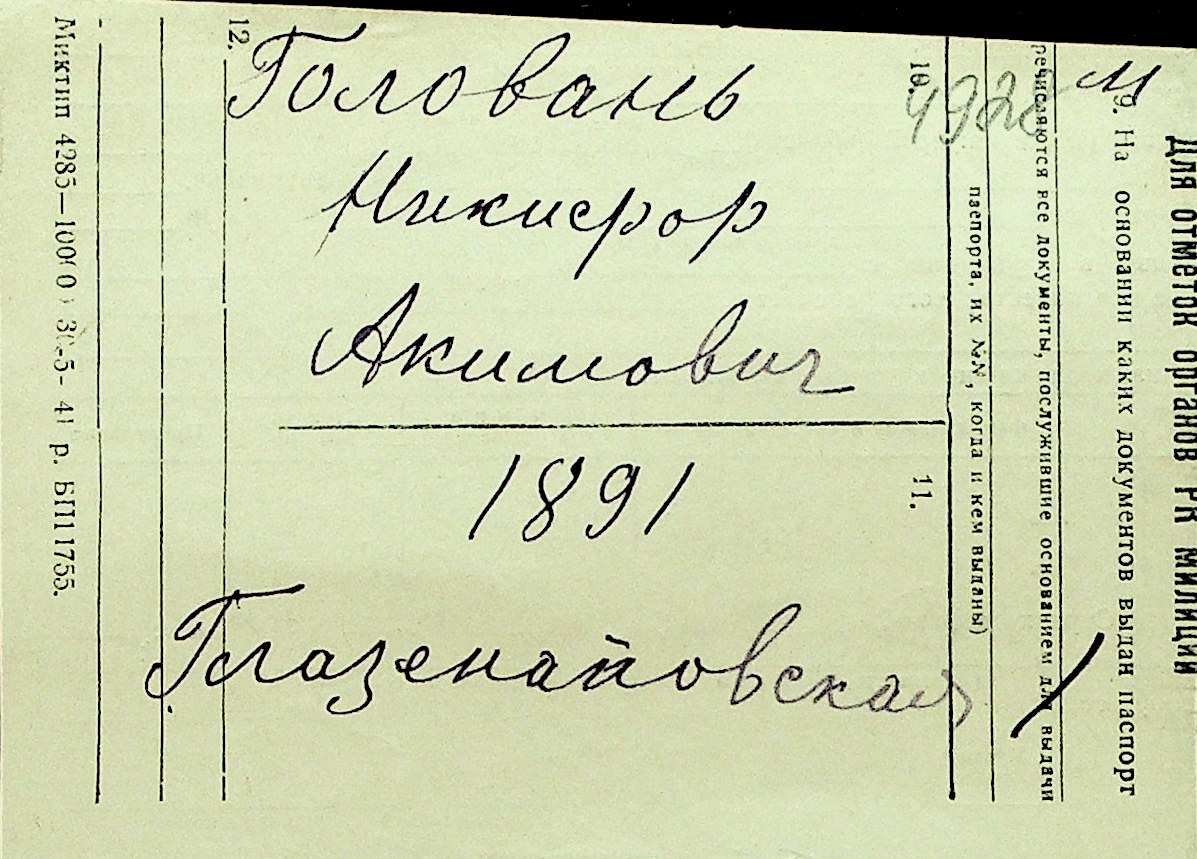 Головань
Никифор
Акимович
1891
Глазенаповская
4928
м
ДЛЯ ОТМЕТОК ОРГАНОВ РК МИЛИЦИИ
9. На основании каких документов выдан паспорт
речисляются все документы, послужившие основанием для выдачи
паспорта, их №№, когда и кем выданы)
10.
11.
12.
Миктип 4285—10000 30-5-41 р. БП11755.